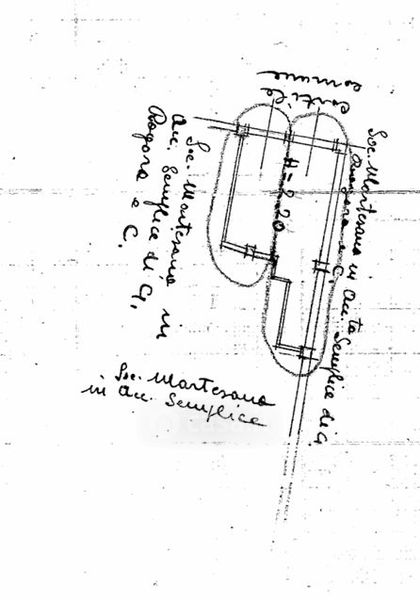 cortile
comune
Soc. Martesana in
acc. Semplice di G.
Rogora e C.
H = 2.20
Soc. Martesana in acc.ta Semplice di G.
Rogora e C.
Soc. Martesana
in acc. Semplice